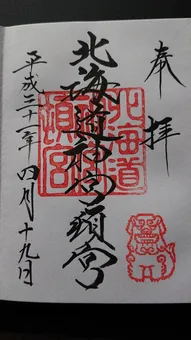 奉拝
北海道神宮頓宮
北海道神宮
頓宮
平成三十一年四月十九日